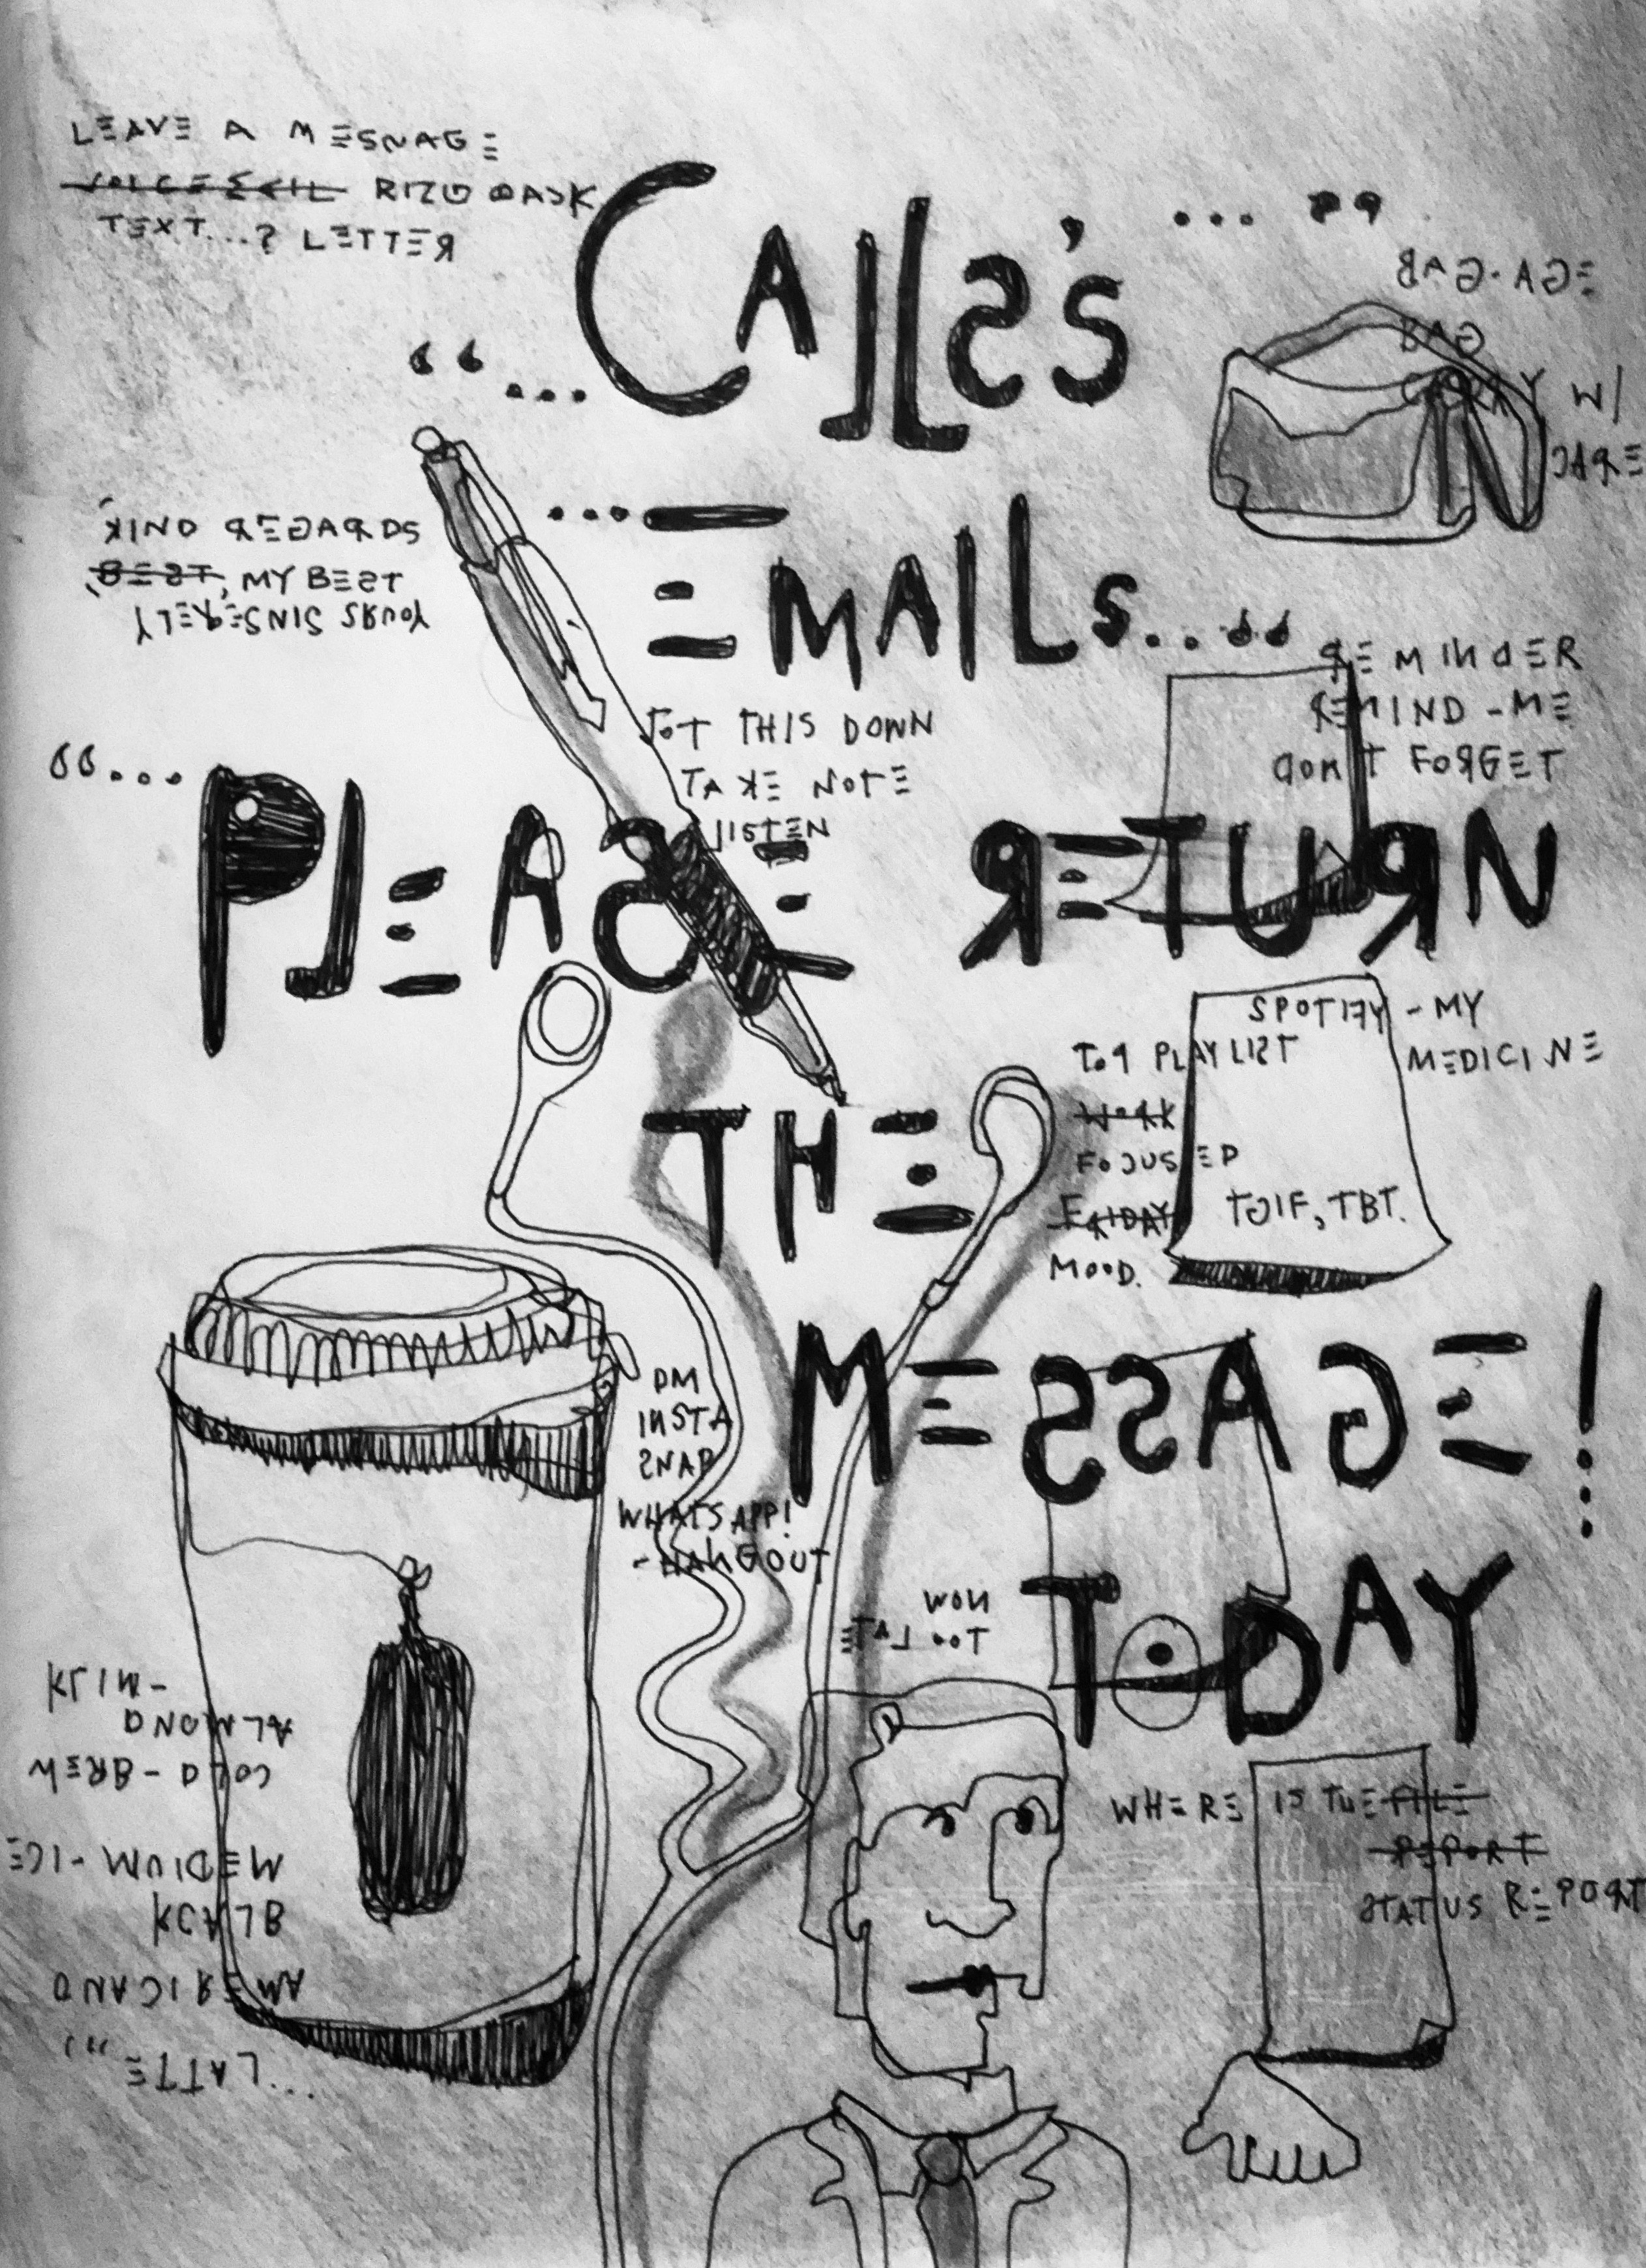 LEAVE A MESSAGE
VOICEMAIL RING BACK
TEXT...? LETTER
"...CALLS's..."
BAG-AGE
BAG
CARRY W/
CARE
...EMAILs..."
KIND REGARDS
BEST, MY BEST
YOURS SINSERELY
REMINDER
REMIND-ME
DON'T FORGET
JOT THIS DOWN
TAKE NOTE
LISTEN
"...PLEASE RETURN
SPOTIFY - MY
MEDICINE
TOP PLAYLIST
WORK
FOCUSSED
FRIDAY
MOOD.
TGIF, TBT.
THE
MESSAGE!
DM
INSTA
SNAP
WHATSAPP!
-HANGOUT
NOW
TOO LATE
TODAY
ALMOND
COLD-BREW
MEDIUM-ICE
BLACK
AMERICANO
...LATTE"
WHERE IS THE FILE
REPORT
STATUS REPORT